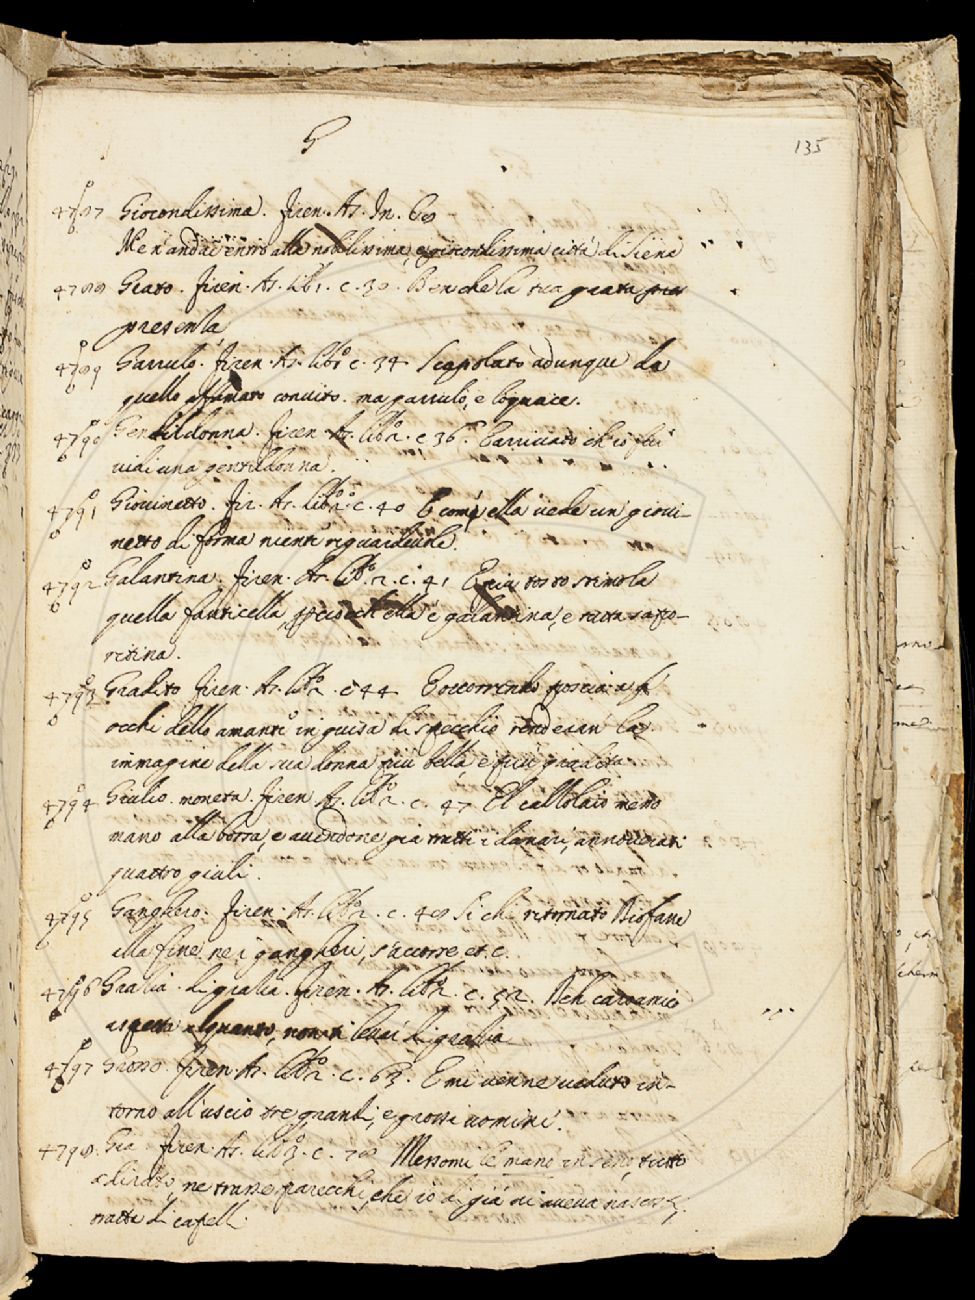 G
135
4787 Giocondissima. Firen. As. In. 68
Me n'andai entro alla nobilissima, e giocondissima città di Siena
4788 Grato. Firen. As. lib. 1. c. 30. Benche la tua grata
presenza
4789 Garrulo. Firen. As. libo c. 34 Scapolato adunque da
quello affumato convito. ma garrulo, e loquace.
4790 Gentildonna. Firen. As. libo 2. c 36. E arrivato ch'io fui
vidi una gentildonna.
4791 Giovinetto. Fir. As. libo 2. c. 40 E come ella vede un giovi-
netto di forma niente riguardevole.
4792 Galantina. Firen. As. libo 2. c. 41 E più tosto stimola
quella fanticella, ella è galantina, e tutta sapo-
ritina.
4793 Gradito Firen. As. libo 2. c 44 E occorrendo poscia a gl'
occhi dello amante in guisa di specchio rendevan la
immagine della sua donna più bella, e più gradita
4794 Giulio. moneta. Firen As. libo 2. c. 47 El mettó
mano alla borsa, e avendone già tratti i danari, annoverati
quattro giuli.
4795 Ganghero. Firen. As. libo 2. c. 48 Si che ritornato Diofane
alla fine ne i gangheri, s'accorse, et c.
4796 Grazia. di grazia. Firen. As. libo 2. c. 52. Deh
aspetta alquanto, non ti levar di grazia
4797 Grosso. Firen. As. libo 2. c. 63. E mi venne veduto in-
torno all'uscio tre grandi, e grossi uomini.
4798. Già Firen. As. libo 3. c. 78 Messomi le mani in seno tutto
adirato, ne trasse parecchi, che io di già vi aveva nascosti,
tratti di capelli